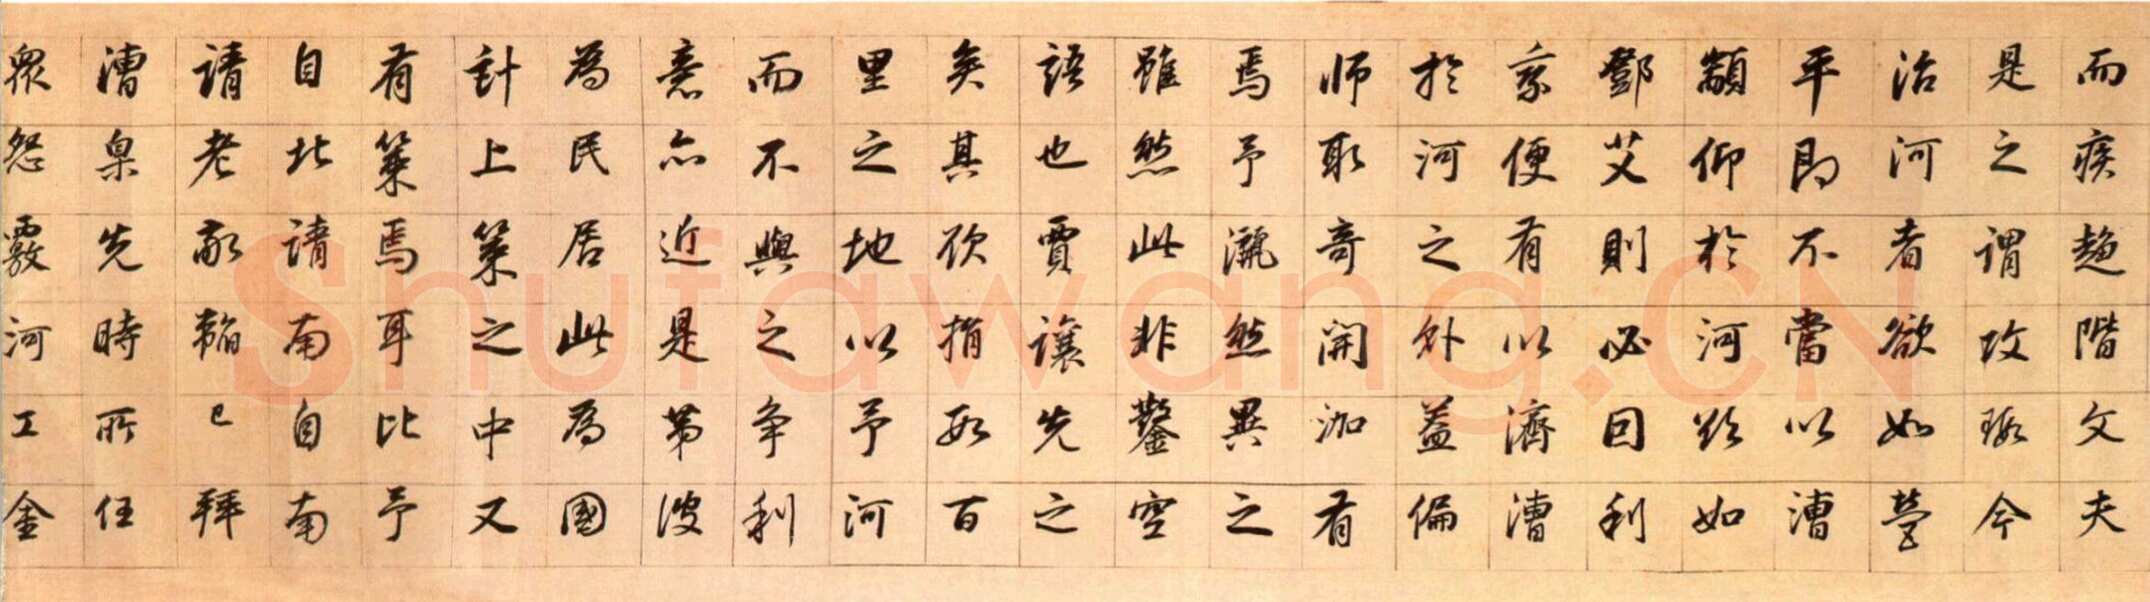 而疾趨階文夫
是之謂攻瑕今
治河者欲如營
平即不當以漕
顓仰於河欤如
鄧艾則必因利
乘便有以濟漕
於河之外蓋偏
師取奇開泇有
焉予灑然異之
雖然此非鑿空
語也賈讓先之
矣其欲捐數百
里之地以予河
而不與之爭利
意亦近是第彼
為民居此為國
計上策之中又
有策焉耳比予
自北請南自南
請老敬韜已拜
漕臬先時所任
眾怨覈河工金
Shufawang.CN